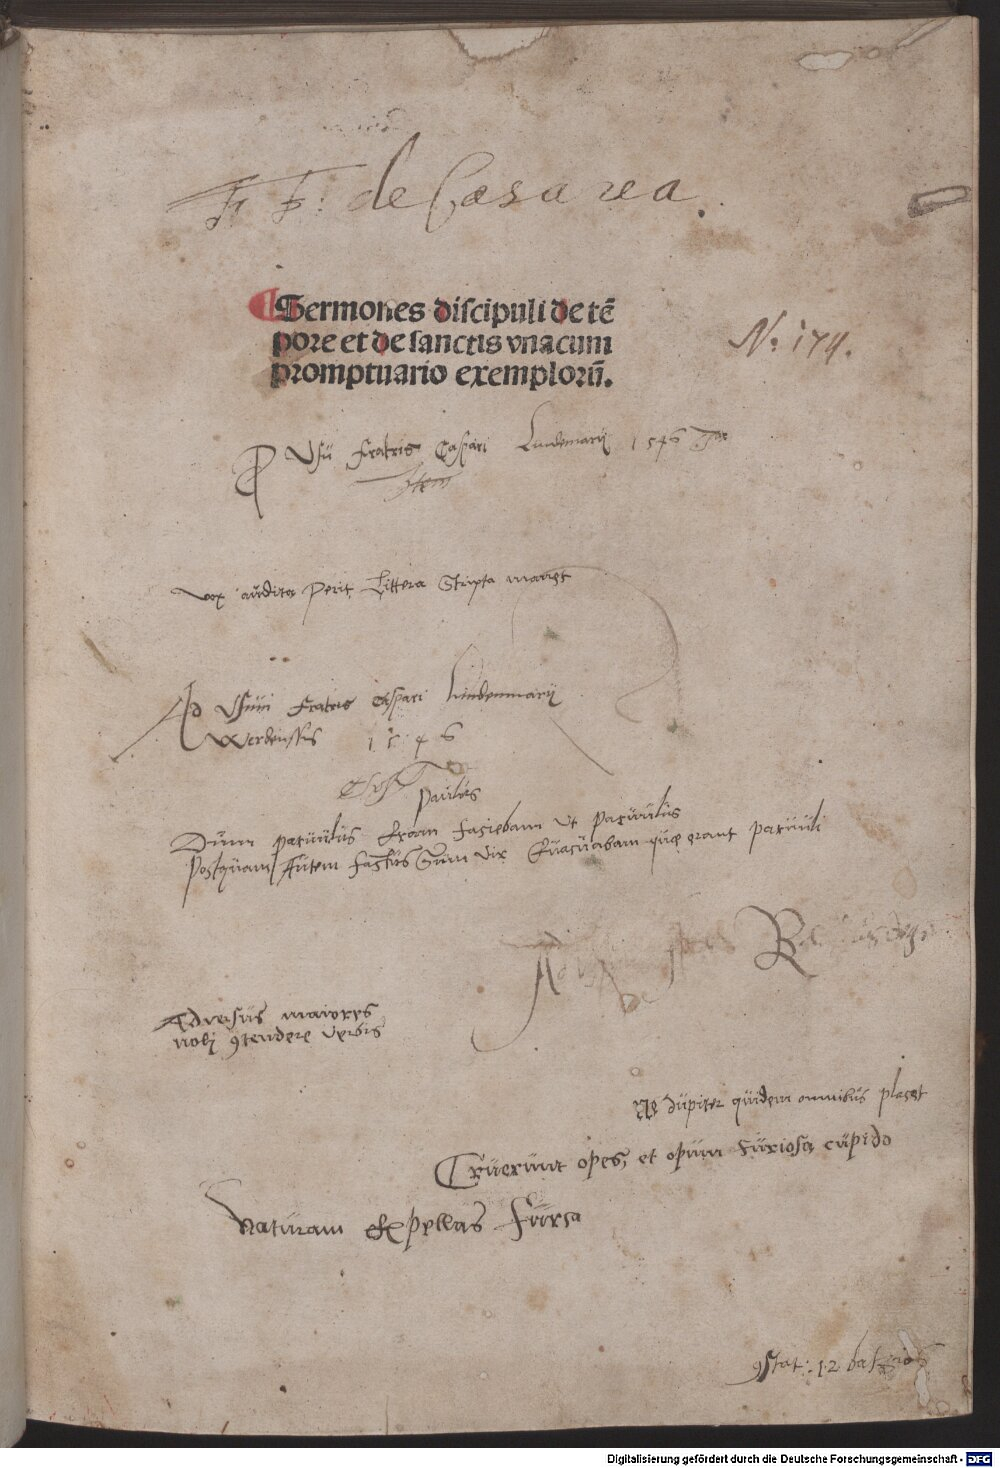 F F: de Cæsarea.
Sermones discipuli de tē
pore et de sanctis vnacum
promptuario exemplorū.
N: 174.
Usū fratris Caspari Lindemarij 1546
Item
Vox audita Perit Littera Scripta manet
Ad Usum fratris Caspari Lindenmarij
Werdensis 1546
Paulus
Dum paruulus Eram Faciebam Vt Paruulus
Postquam Autem factus Sum Vir Euacuabam quæ erant paruuli
Aduersus maiores
nolj 9tendere verbis
Ne Jupiter quidem omnibus placet
Cruerunt opes, et opum furiosa cupido
Naturam Expellas Furca
9stat: 12
Digitalisierung gefördert durch die Deutsche Forschungsgemeinschaft - DFG